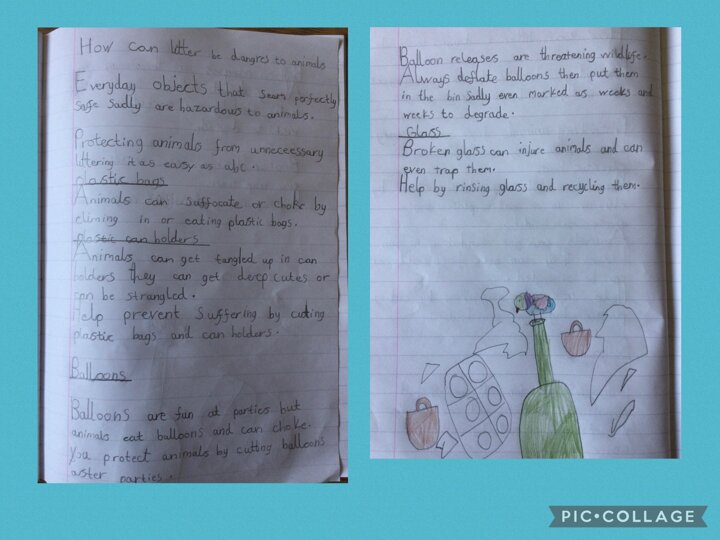 How can litter be dangres to animals
Everyday objects that seam perfectly
safe sadly are hazardous to animals.
Protecting animals from unneceessary
littering it as easy as abc.
plastic bags
Animals can suffocate or choke by
climing in or eating plastic bags.
plastic can holders
Animals can get tangled up in can
holders they can get deep cutes or
can be strangled.
Help prevent suffering by cutting
plastic bags and can holders.
Balloons
Balloons are fun at parties but
animals eat balloons and can choke.
you protect animals by cutting balloons
aster parties.
Balloon releases are threatening wildlife.
Always deflate balloons then put them
in the bin sadly even marked as weeks and
weeks to degrade.
Glass
Broken glass can injure animals and can
even trap them.
Help by rinsing glass and recycling them.
PIC•COLLAGE